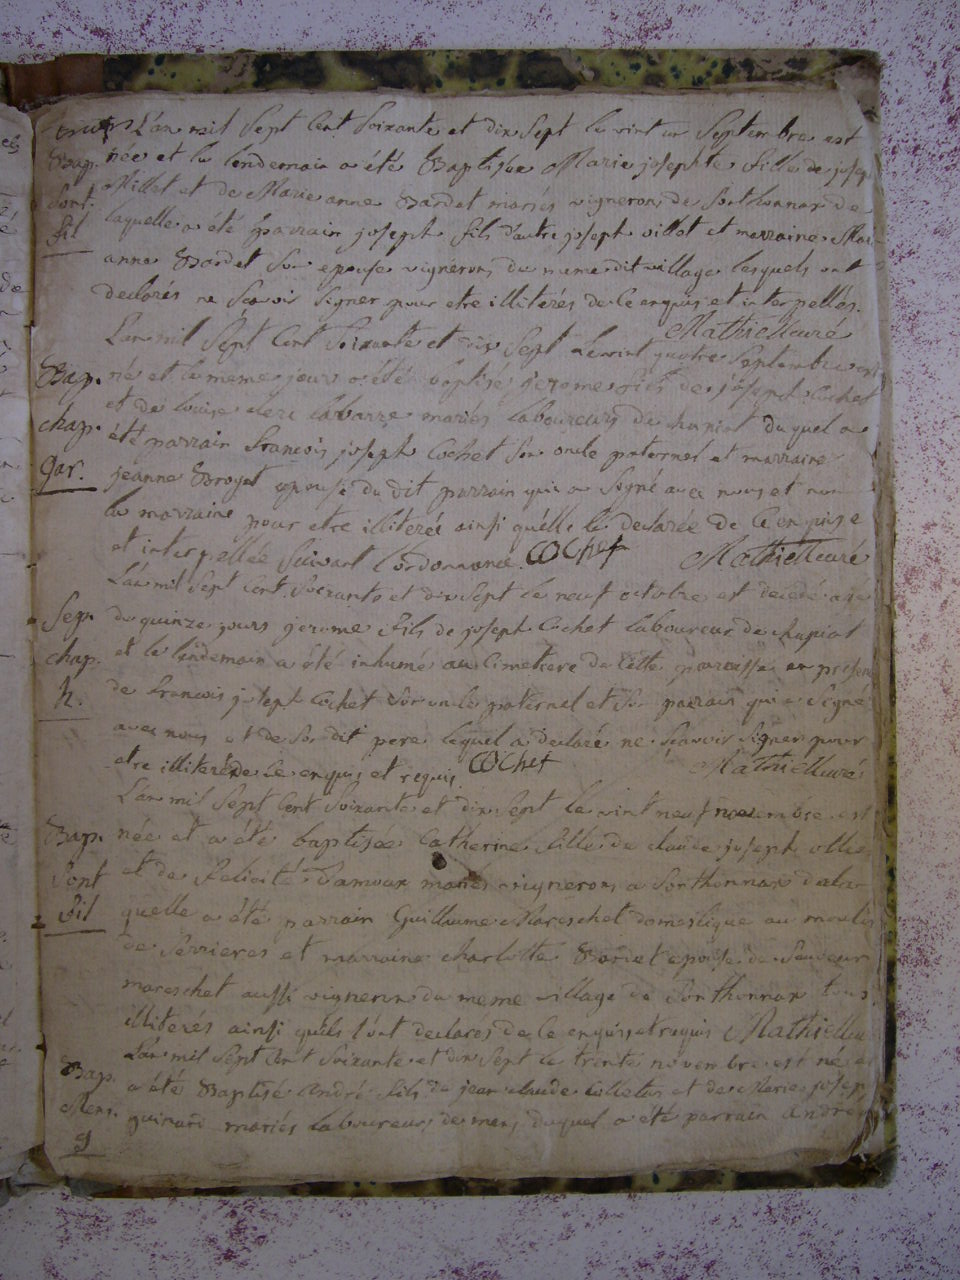 L'an mil Sept Cent Soixante et dix Sept le vint un Septembre est
Bap. née et le lendemain a été Baptisée Marie josephte fille de josep
Sont. Millet et de Marie anne Bardet mariés vignerons de Sonthonnax de
fil laquelle a été parrain joseph fils d'autre joseph Millet et marraine Mari
anne Bardet Son epouse vignerons du meme dit village lesquels ont
declarés ne Scavoir Signer pour etre illiterés de ce enquis et interpellés.
Mathieu curé
L'an mil Sept Cent Soixante et dix Sept le vint quatre Septembre est
Bap. né et le meme jour a été baptisé jerome fils de joseph Cochet
chap. et de louise mariés laboureurs de chapiat duquel a
gar. été parrain francois joseph Cochet Son oncle paternel et marraine
jeanne epouse du dit parrain qui a Signé avec nous et non
la marraine pour etre illiterée ainsi qu'elle l'a declarée de ce enquise
et interpellée Suivant l'ordonnance. COChet Mathieu curé
L'an mil Sept Cent Soixante et dix Sept le neuf octobre est decedé agé
Sep. de quinze jours jerome fils de joseph Cochet laboureur de chapiat
chap. et le lendemain a été inhumé au Cimetiere de Cette paroisse en presen
h. de francois joseph Cochet Son oncle paternel et Son parrain qui a Signé
avec nous et de Son dit pere lequel a declaré ne Scavoir Signer pour
etre illiteré de ce enquis et requis COChet Mathieu curé
L'an mil Sept Cent Soixante et dix Sept le vint neuf novembre est
Bap. née et a été baptisée Catherine fille de claude joseph
Sont et de felicité Damour mariés vignerons a Sonthonnax de la
fil quelle a été parrain Guillaume Mareschet domestique au moulin
de Serrieres et marraine charlotte epouse de Sauveur
mareschet aussi vigneron du meme village de Sonthonnax tous
illiterés ainsi qu'ils l'ont declarés de ce enquis et requis Mathieu cu
L'an mil Sept Cent Soixante et dix Sept le trente novembre est né et
Bap. a été Baptisé André fils de jean claude et de Marie josep
Mens. mariés laboureurs de mens duquel a été parrain André
g